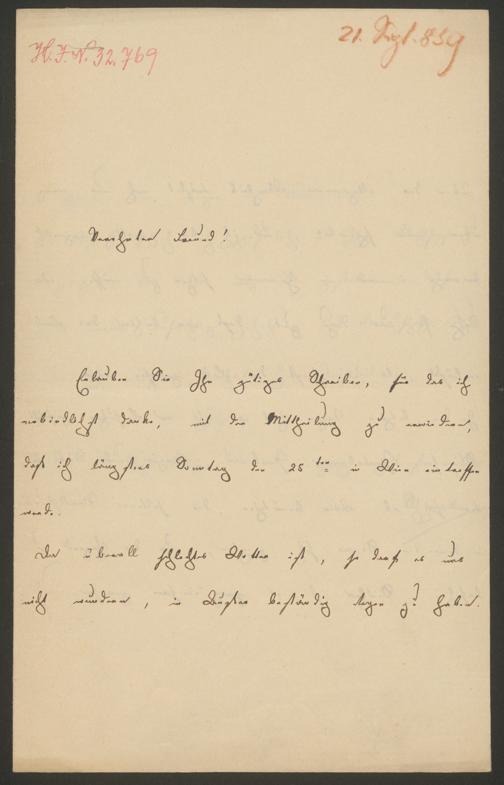 H.I.N. 32,769
21. Sept. 859
Verehrter Freund!
Erlauben Sie Ihr gütiges Schreiben, für das ich
verbindlichst danke, mit der Mittheilung zu erwiedern,
daß ich längstens Sonntag den 25ten in Wien eintreffen
werde.
Da überall schlechtes Wetter ist, so darf es uns
nicht wundern, in beständig Regen zu haben.